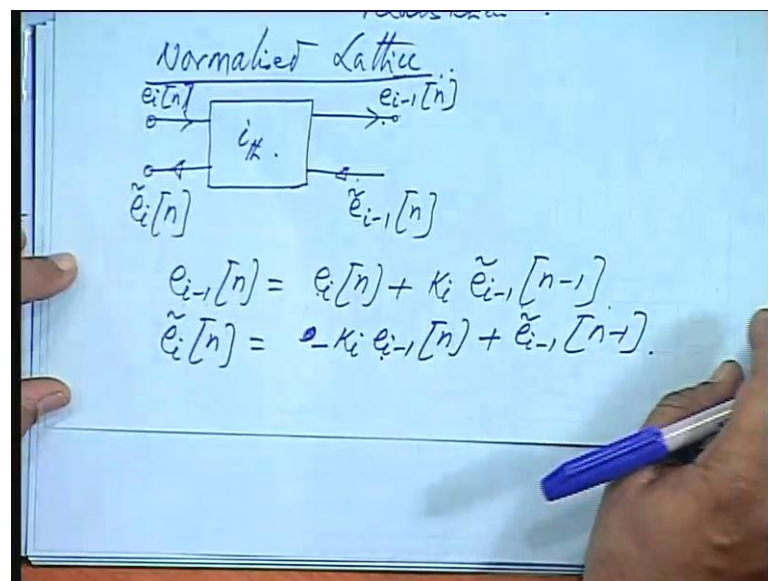 Normalised Lattice
ei[n] ei-1[n]
ith.
ẽi[n] ẽi-1[n]
ei-1[n] = ei[n] + Ki ẽi-1[n-1].
ẽi[n] = -Ki ei-1[n] + ẽi-1[n-1].